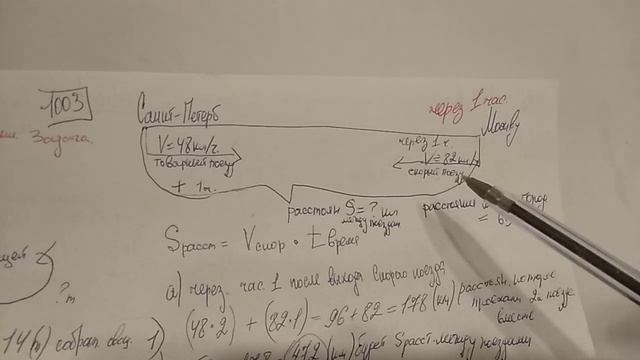 1003
Санкт-Петерб
через 1 час.
Москву
Задача.
V=48км/ч.
товарный поезд
+ 1ч.
через 1ч.
V=82км/ч
скорый поезд
расстоян S=? км
между поездами
расстояни
город
= 6
Sрасст = Vскор • t время
?m
а) через час. 1 после выхода скорого поезда
(48·2) + (82·1) = 96 + 82 = 178 (км) расстоян, которые
проехали 2а поезда
вместе
14(m) собрал овощ. 1)
472 (км) будет Sрасст. между поездами